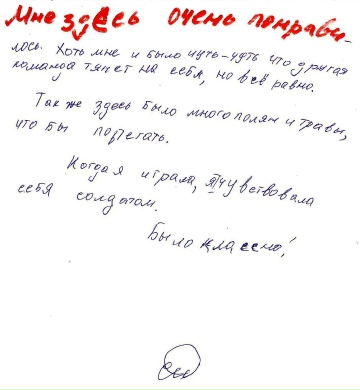 Мне здесь очень понрави-
лось. Хоть мне и было чуть-чуть что другая
команда тянет на себя, но всё равно.
Так же здесь было много полян и травы,
что бы
Когда я играла, я чувствовала
себя солдатом.
Было классно!